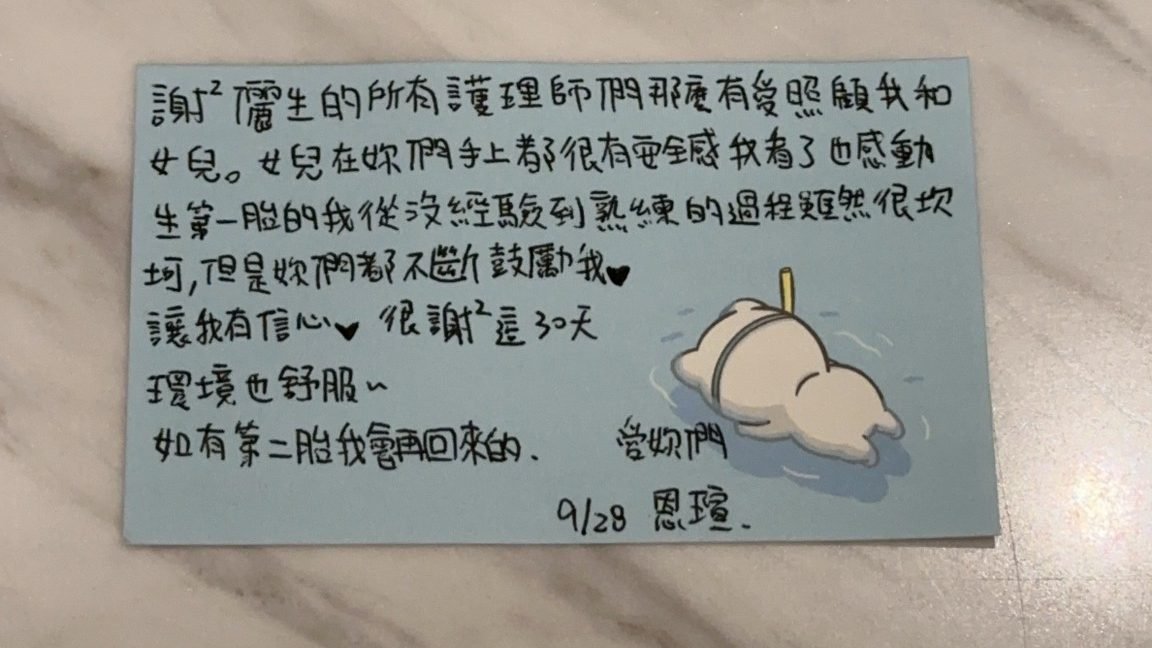 謝²儷生的所有護理師們那麼有愛照顧我和
女兒。女兒在妳們手上都很有安全感我看了也感動
生第一胎的我從沒經驗到熟練的過程雖然很坎
坷,但是妳們都不斷鼓勵我♥
讓我有信心♥ 很謝²這30天
環境也舒服~
如有第二胎我會再回來的.
愛妳們
9/28 恩瑄.